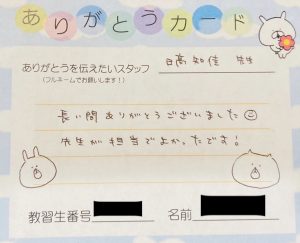 ありがとうカード
ありがとうを伝えたいスタッフ
(フルネームでお願いします!)
日高知佳 先生
長い間ありがとうございました☺
先生が担当でよかったです!
教習生番号
名前